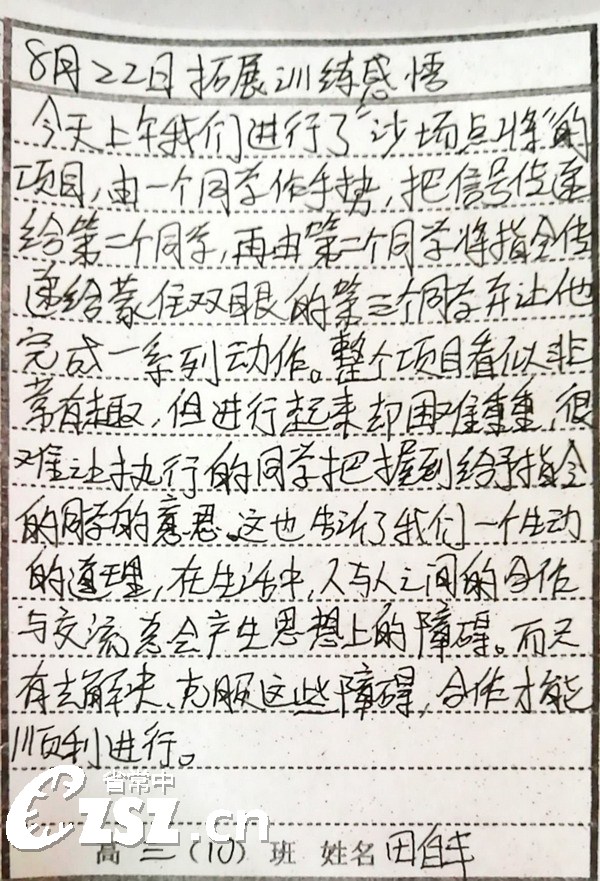 8月22日拓展训练感悟
今天上午我们进行了“沙场点将”的
项目,由一个同学作手势,把信号传递
给第二个同学,再由第二个同学将指令传
递给蒙住双眼的第三个同学并让他
完成一系列动作。整个项目看似非
常有趣,但进行起来却困难重重,很
难让执行的同学把握到给予指令
的同学的意思。这也告诉了我们一个生动
的道理,在生活中,人与人之间的合作
与交流总会产生思想上的障碍。而只
有去解决、克服这些障碍,合作才能
顺利进行。
省常中
CZSZ.cn
高三(10)班 姓名 田自丰